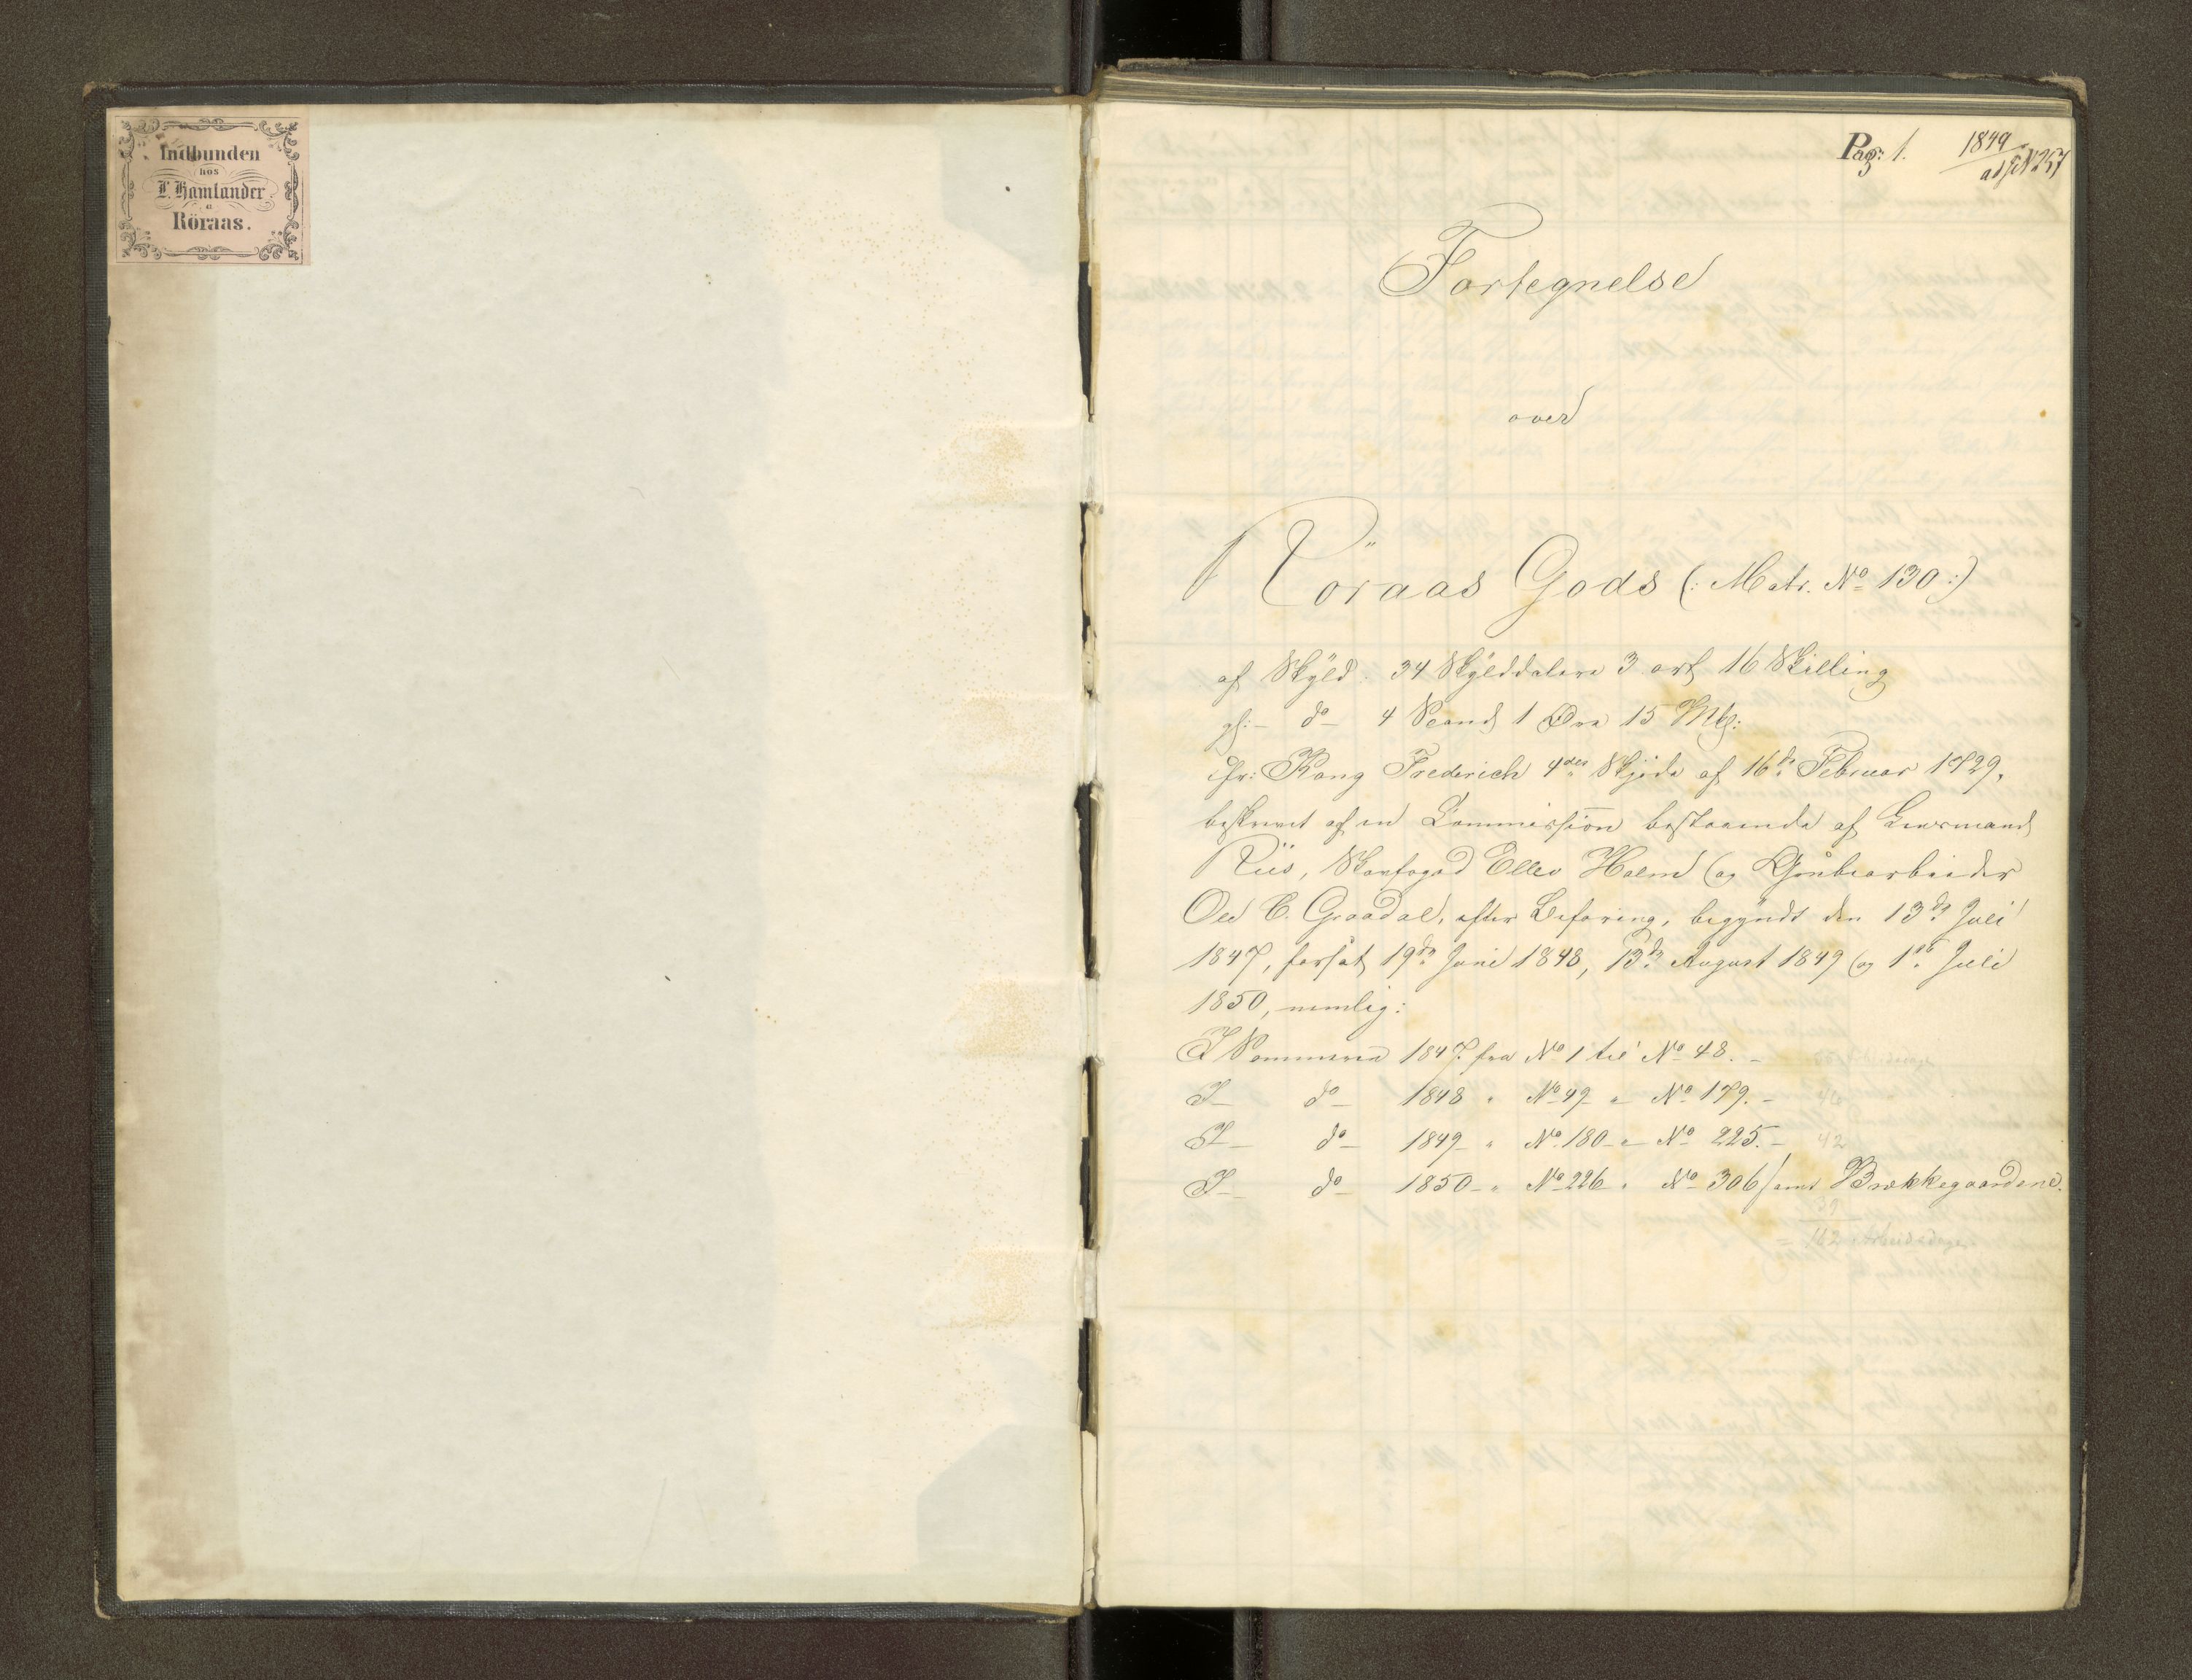 Indbunden
hos
L. Hamlander
Röraas.
Pag: 1.
1849
ad N 257
Fortegnelse
over
Röraas Gods (: Matr. No 130 :)
af Skyld. 34 Skylddalere 3 ort 16 Skilling
gl: - do - 4 Spand 1 Øre 15 Mk:
cfr: Kong Frederich 4des Skjöde af 16de Februar 1729,
beskrevet af en Commission bestaaende af Lensmand
Riis, Skovfoged Ellev Holm og Grubearbeider
Ole C. Graadal, efter Befaring, begyndt den 13de Juli
1847, forsat 19de Juni 1848, 13de August 1849 og 1ste Juli
1850, nemlig:
I Sommeren 1847 fra No 1 til No 48. -
I - do - 1848 " No 49 " No 179. -
I - do - 1849 " No 180 - " No 225. - 42
I - do - 1850 - " No 226 " No 306 samt Brækkegaardene.
39
= 162 Arbeidsdage